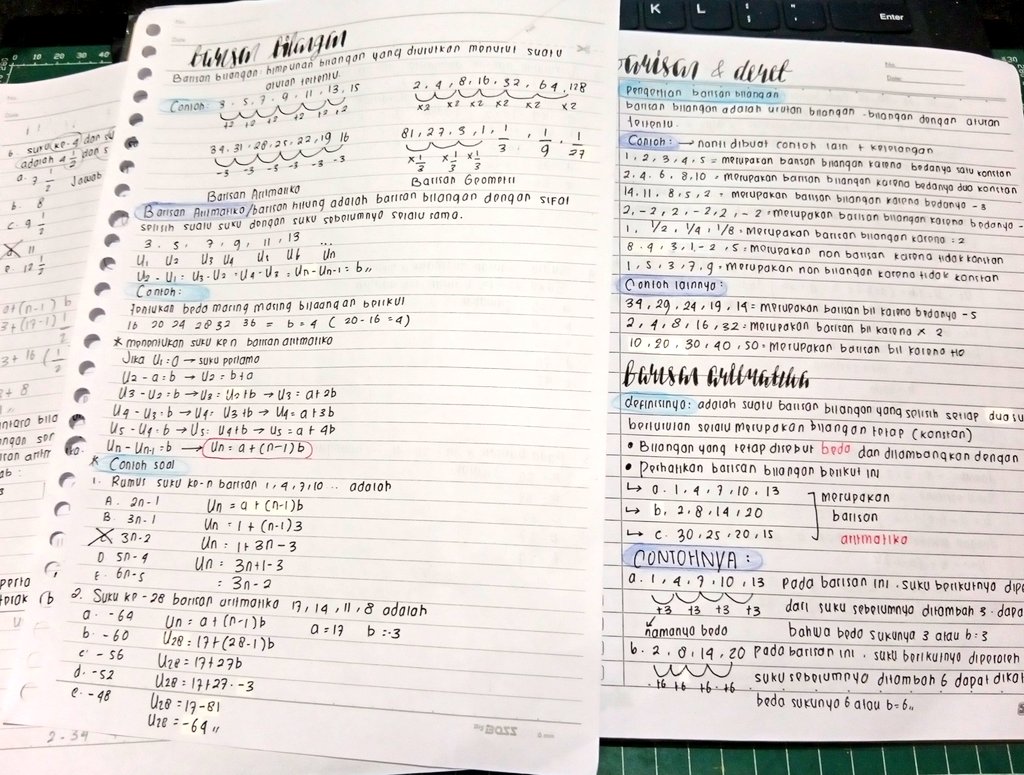 barisan bilangan
Barisan bilangan: himpunan bilangan yang diurutkan menurut suatu
aturan tertentu.
Contoh: 3. 5, 7, 9, 11, 13, 15
+2 +2 +2 +2 +2 +2
2, 4, 8, 16, 32, 64, 128
x2 x2 x2 x2 x2 x2
34, 31, 28, 25, 22, 19, 16
-3 -3 -3 -3 -3 -3
81, 27, 3, 1, 1/3, 1/9, 1/27
x 1/3 x 1/3 x 1/3
Barisan Aritmatika
Barisan Geometri
Barisan Aritmatika/barisan hitung adalah barisan bilangan dengan sifat
selisih suatu suku dengan suku sebelumnya selalu sama.
3. 5, 7, 9, 11, 13 ...
U1 U2 U3 U4 U5 U6 Un
U2 - U1 = U3 - U2 = U4 - U3 = Un - Un-1 = b,,
Contoh:
tentukan beda masing masing bilangan berikut
16 20 24 28 32 36 = b = 4 (20-16 = 4)
* menentukan suku ke n barisan aritmatika
Jika U1 = a → suku pertama
U2 - a = b → U2 = b + a
U3 - U2 = b → U3 = U2 + b → U3 = a + 2b
U4 - U3 = b → U4 = U3 + b → U4 = a + 3b
U5 - U4 = b → U5 = U4 + b → U5 = a + 4b
Un - Un-1 = b → Un = a + (n-1) b
* Contoh soal
1. Rumus suku ke-n barisan 1, 4, 7, 10 .. adalah
A. 2n-1 Un = a + (n-1)b
B. 3n-1 Un = 1 + (n-1)3
C. 3n-2 Un = 1 + 3n - 3
D. 5n-4 Un = 3n+1-3
E. 6n-5 = 3n-2
2. Suku ke-28 barisan aritmatika 17, 14, 11, 8 adalah
a. -64 Un = a + (n-1)b a = 17 b = -3
b. -60 U28 = 17 + (28-1)b
c. -56 U28 = 17 + 27b
d. -52 U28 = 17 + 27 . -3
e. -48 U28 = 17 - 81
U28 = -64,,
Big BOSS
barisan & deret
No.
Date:
Pengertian barisan bilangan
barisan bilangan adalah urutan bilangan - bilangan dengan aturan
tertentu.
Contoh: → nanti dibuat contoh lain + keterangan
1, 2, 3, 4, 5 = merupakan barisan bilangan karena bedanya satu konstan
2, 4, 6, 8, 10 = merupakan barisan bilangan karena bedanya dua konstan
14, 11, 8, 5, 2 = merupakan barisan bilangan karena bedanya -3
2, -2, 2, -2, 2, -2 = merupakan barisan bilangan karena bedanya -
1, 1/2, 1/4, 1/8 = merupakan barisan bilangan karena : 2
8, 4, 3, 1, -2, 5 = merupakan non barisan karena tidak konstan
1, 5, 3, 7, 9 = merupakan non bilangan karena tidak konstan
Contoh lainnya:
34, 29, 24, 19, 14 = merupakan barisan bil karena bedanya -5
2, 4, 8, 16, 32 = merupakan barisan bil karena x 2
10, 20, 30, 40, 50 = merupakan barisan bil karena +10
barisan aritmatika
definisinya: adalah suatu barisan bilangan yang selisih setiap dua su
berturutan selalu merupakan bilangan tetap (konstan)
• Bilangan yang tetap disebut beda dan dilambangkan dengan
• Perhatikan barisan bilangan berikut ini
↳ a. 1, 4, 7, 10, 13 merupakan
↳ b. 2, 8, 14, 20 barisan
↳ c. 30, 25, 20, 15 aritmatika
CONTOHNYA:
a. 1, 4, 7, 10, 13 pada barisan ini, suku berikutnya dipe
+3 +3 +3 +3 dari suku sebelumnya ditambah 3. dapa
namanya beda bahwa beda sukunya 3 atau b = 3
b. 2, 8, 14, 20 pada barisan ini, suku berikutnya diperoleh
+6 +6 +6 +6 suku sebelumnya ditambah 6 dapat dika
beda sukunya 6 atau b = 6,,